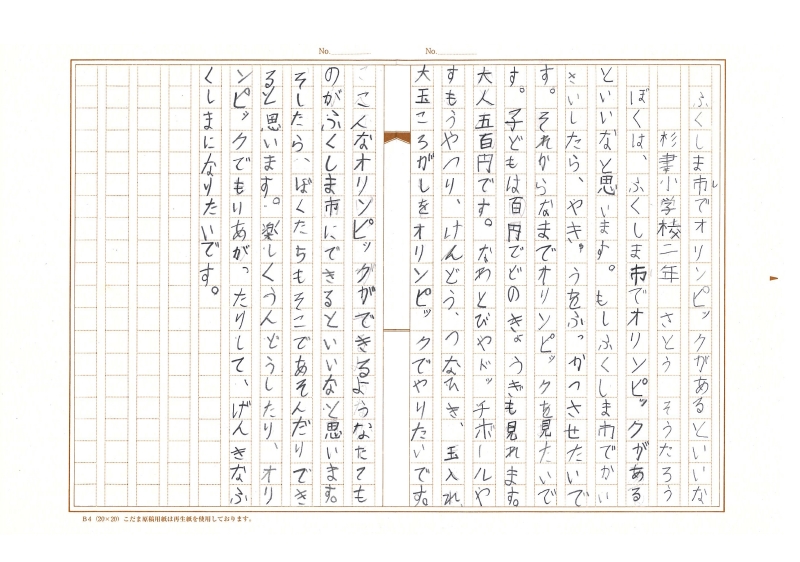 No.
No.
ふくしま市でオリンピックがあるといいな
杉妻小学校二年 さとう そうたろう
ぼくは、ふくしま市でオリンピックがある
といいなと思います。もしふくしま市でかい
さいしたら、やきゅうをふっかつさせたいで
す。それからなまでオリンピックを見たいで
す。子どもは百円でどのきょうぎも見れます。
大人五百円です。なわとびやドッチボールや
すもうやつり、けんどう、つなひき、玉入れ、
大玉ころがしをオリンピックでやりたいです。
こんなオリンピックができるようなたても
のがふくしま市にできるといいなと思います。
そしたら、ぼくたちもそこであそんだりでき
ると思います。楽しくうんどうしたり、オリ
ンピックでもりあがったりして、げんきなふ
くしまになりたいです。
B4（20×20）こだま原稿用紙は再生紙を使用しております。